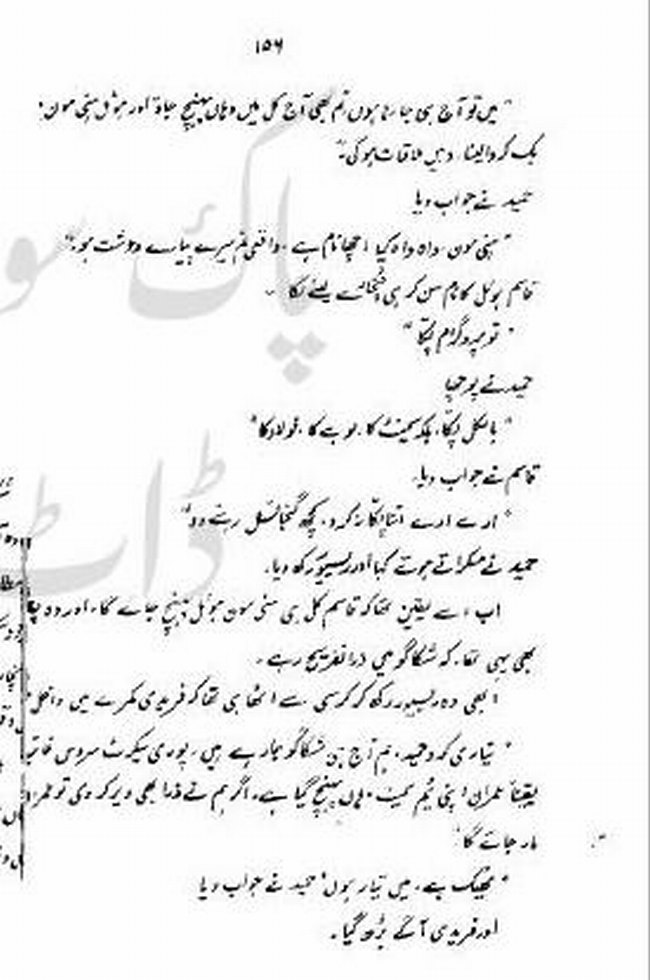 ۱۵۶
" میں تو آج ہی جا رہا ہوں تم بھی آج کل میں وہاں پہنچ جاؤ اور ہوٹل ہنی مون
بک کروا لینا۔ وہیں ملاقات ہو گی۔"
حمید نے جواب دیا
" ہنی مون۔ واہ واہ کیا اچھا نام ہے۔ واقعی تم میرے پیارے دوشت ہو۔"
قاسم ہوٹل کا نام سن کر ہی چٹخارے لینے لگا۔
" تو پروگرام پکا "
حمید نے پوچھا
" بالکل پکا۔ بلکہ سیمنٹ کا۔ لوہے کا۔ فولاد کا "
قاسم نے جواب دیا۔
" ارے ارے اتنا پکا نہ کرو۔ کچھ گنجائش رہنے دو "
حمید نے مسکراتے ہوئے کہا اور رسیور رکھ دیا۔
اب اسے یقین تھا کہ قاسم کل ہی ہنی مون ہوٹل پہنچ جائے گا۔ اور وہ چا
بھی یہی تھا۔ کہ شکاگو میں ذرا تفریح رہے۔
ابھی وہ رسیور رکھ کر کرسی سے اٹھا ہی تھا کہ فریدی کمرے میں داخل
" تیاری کرو حمید۔ ہم آج ہی شکاگو جا رہے ہیں۔ پوری سیکرٹ سروس
یقیناً عمران اپنی ٹیم سمیت وہاں پہنچ گیا ہے۔ اگر ہم نے ذرا بھی دیر کر دی تو
مار جائے گا۔
" ٹھیک ہے۔ میں تیار ہوں " حمید نے جواب دیا
اور فریدی آگے بڑھ گیا۔
پاک سو
ڈاٹ